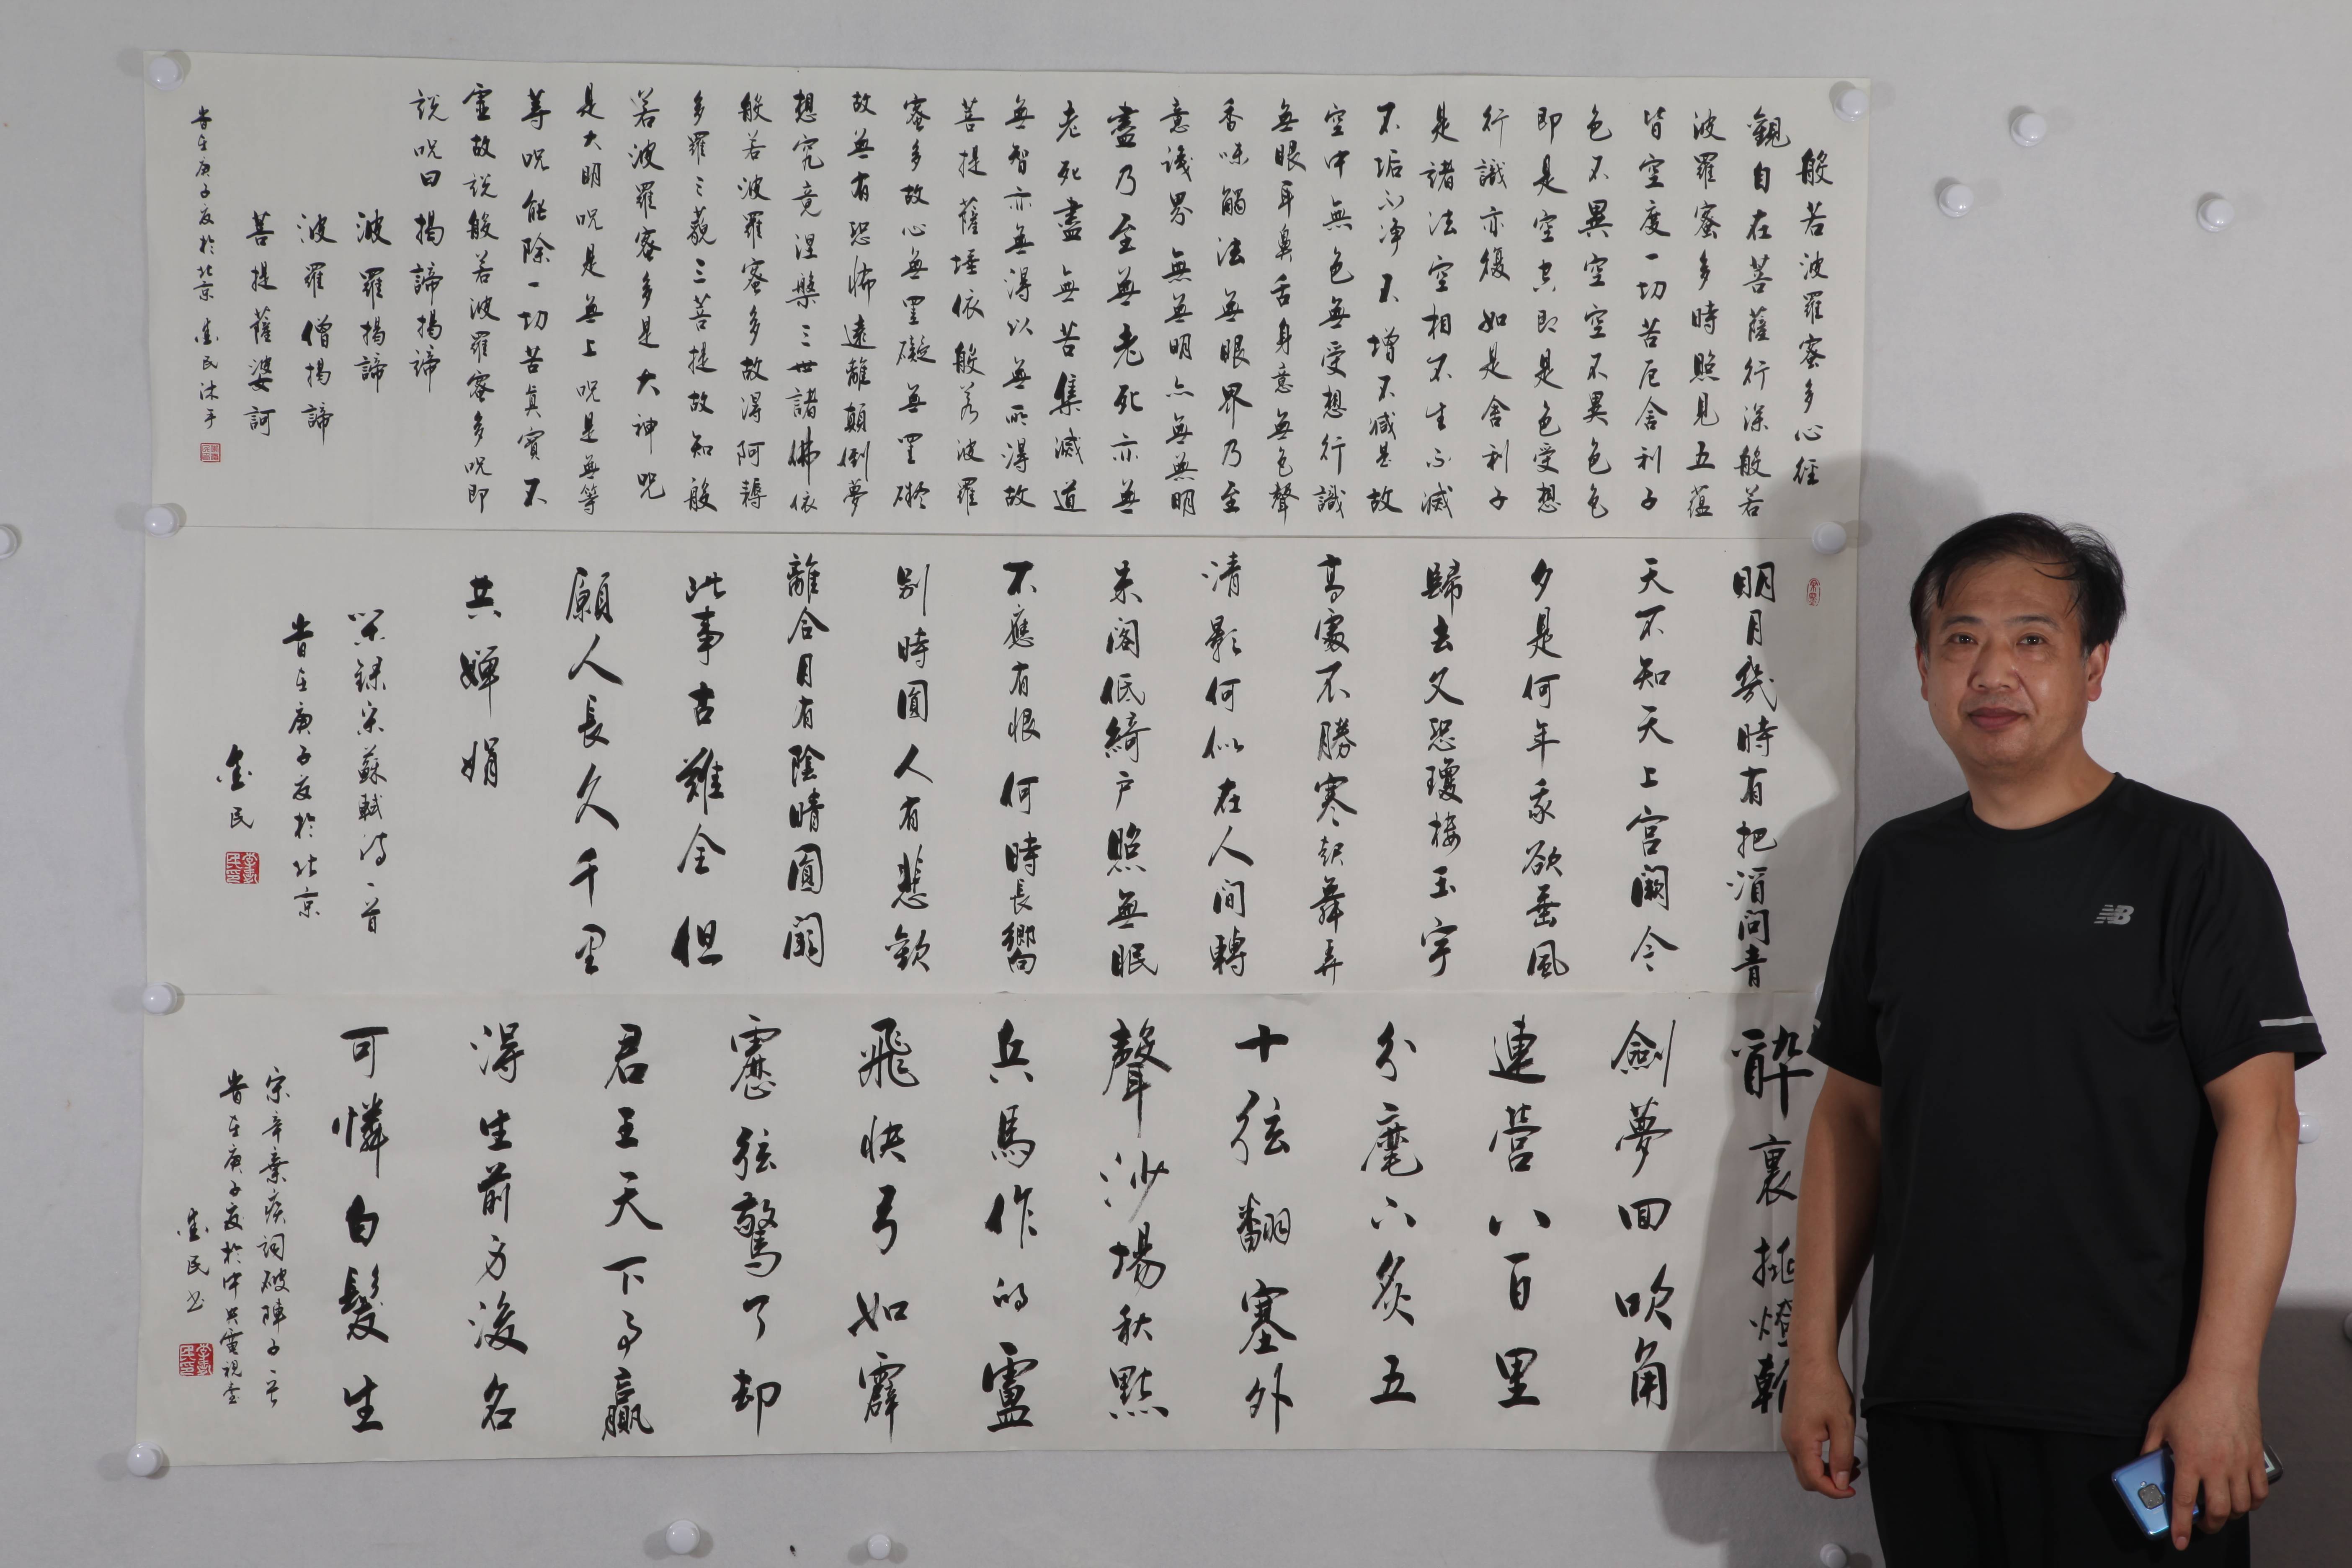 般若波羅蜜多心經
觀自在菩薩行深般若
波羅蜜多時照見五蘊
皆空度一切苦厄舍利子
色不異空空不異色色
即是空空即是色受想
行識亦復如是舍利子
是諸法空相不生不滅
不垢不淨不增不減是故
空中無色無受想行識
無眼耳鼻舌身意無色聲
香味觸法無眼界乃至
意識界無無明亦無無明
盡乃至無老死亦無
老死盡無苦集滅道
無智亦無得以無所得故
菩提薩埵依般若波羅
蜜多故心無罣礙無罣礙
故無有恐怖遠離顛倒夢
想究竟涅槃三世諸佛依
般若波羅蜜多故得阿耨
多羅三藐三菩提故知般
若波羅蜜多是大神咒
是大明咒是無上咒是無等
等咒能除一切苦真實不
虛故說般若波羅蜜多咒即
說咒曰揭諦揭諦
波羅揭諦
波羅僧揭諦
菩提薩婆訶
歲在庚子夏於北京 志民沐手
明月幾時有把酒問青
天不知天上宮闕今
夕是何年我欲乘風
歸去又恐瓊樓玉宇
高處不勝寒起舞弄
清影何似在人間轉
朱閣低綺戶照無眠
不應有恨何時長嚮
別時圓人有悲歡
離合月有陰晴圓闕
此事古難全但
願人長久千里
共嬋娟
宋蘇軾詩一首
歲在庚子夏於北京
志民
醉裏挑燈
劍夢回吹角
連營八百里
分麾下炙五
十弦翻塞外
聲沙場秋點
兵馬作的盧
飛快弓如霹
靂弦驚了却
君王天下事贏
得生前身後名
可憐白髮生
宋辛棄疾詞破陣子一首
歲在庚子夏於中央電視臺
志民书
NB